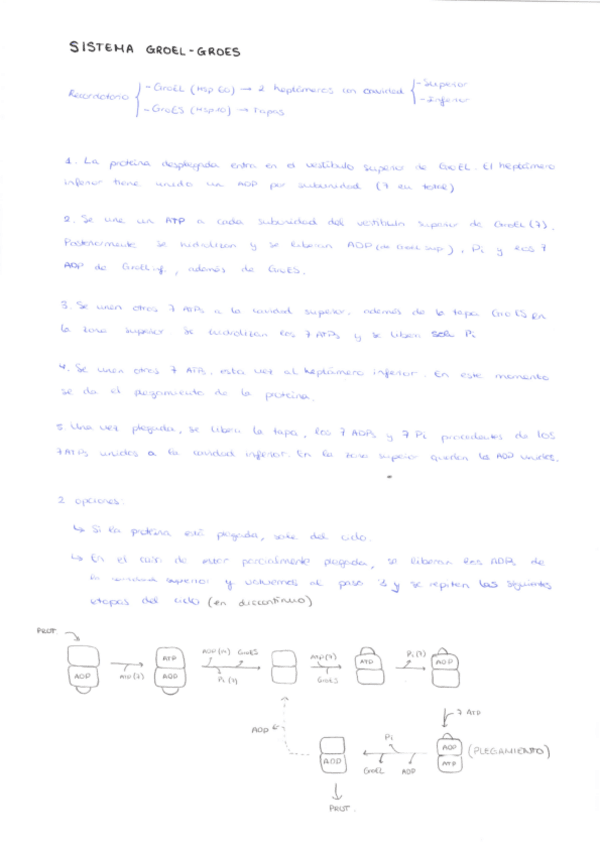 SISTEMA GROEL-GROES
Recordatorio
- GroEL (Hsp 60) → 2 heptámeros con cavidad
- Superior
- Inferior
- GroES (Hsp10) → Tapas
1. La proteína desplegada entra en el vestíbulo superior de GroEL. El heptámero
inferior tiene unido un ADP por subunidad (7 en total)
2. Se une un ATP a cada subunidad del vestíbulo superior de GroEL (7).
Posteriormente se hidrolizan y se liberan ADP (de GroEL sup), Pi y los 7
ADP de GroEL inf, además de GroES.
3. Se unen otros 7 ATPs a la cavidad superior, además de la tapa GroES en
la zona superior. Se hidrolizan los 7 ATPs y se libera Pi
4. Se unen otros 7 ATPs, esta vez al heptámero inferior. En este momento
se da el plegamiento de la proteína.
5. Una vez plegada, se libera la tapa, los 7 ADPs y 7 Pi procedentes de los
7ATPs unidos a la cavidad inferior. En la zona superior quedan los ADP unidos.
2 opciones:
↳ Si la proteína está plegada, sale del ciclo.
↳ En el caso de estar parcialmente plegada, se liberan los ADPs de
la cavidad superior y volvemos al paso 3 y se repiten las siguientes
etapas del ciclo (en discontinuo)
PROT.
ADP
ATP (7)
ATP
ADP
ADP (14) GroES
Pi (7)
ATP (7)
GroES
ATP
Pi (7)
ADP
7 ATP
ADP
ATP
(PLEGAMIENTO)
Pi
GroEL ADP
ADP
ADP
PROT.